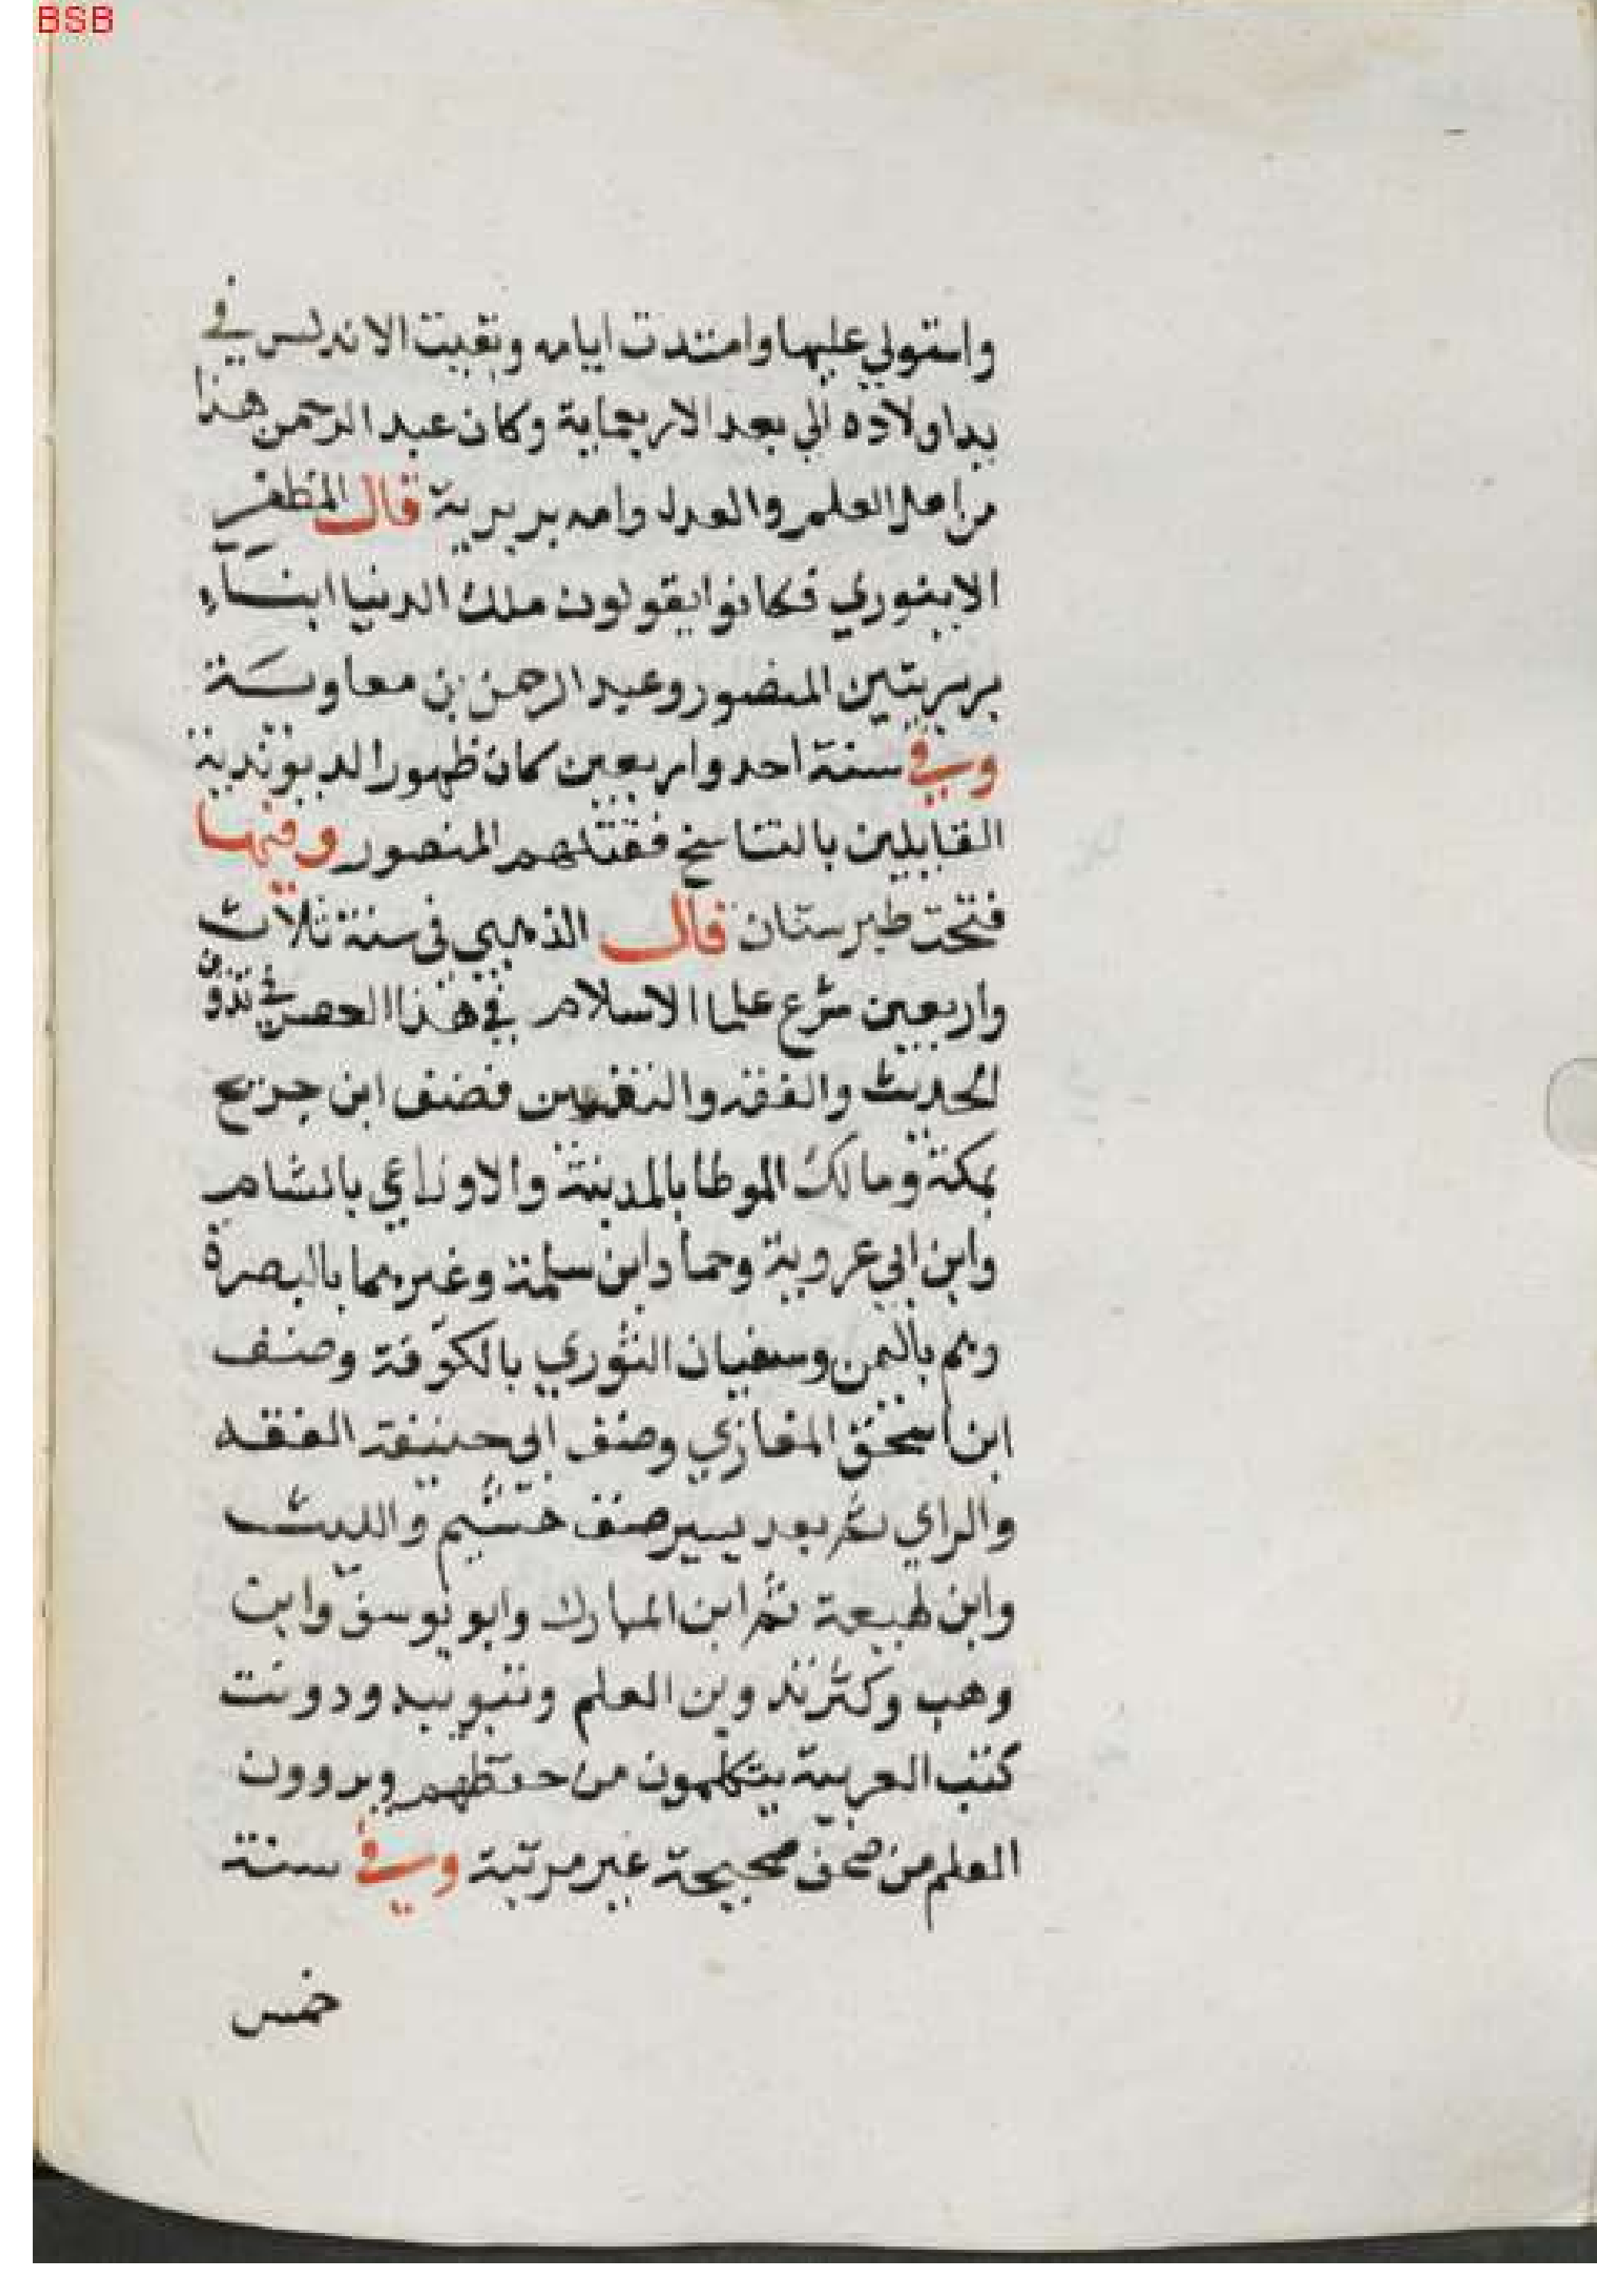 BSB
واستولي عليها وامتدت ايامه وبقيت الاندلس في
يد اولاده الي بعد الاربعماية وكان عبد الرحمن هذا
من اهل العلم والعدل وامه بربرية قال المظفر
الابيوردي فكانوا يقولون ملك الدنيا ابناء
بربريتين المنصور وعبد الرحمن بن معاوية
وفي سنة احد واربعين كان ظهور الديوندية
القايلين بالتناسخ فقتلهم المنصور وفيها
فتحت طبرستان قال الذهبي في سنة ثلاث
واربعين شرع علما الاسلام في هذا العصر في تدوين
الحديث والفقه والتفسير فصنف ابن جريج
بمكة ومالك الموطا بالمدينة والاوزاعي بالشام
وابن ابي عروبة وحماد ابن سلمة وغيرهما بالبصرة
باليمن وسفيان الثوري بالكوفة وصنف
ابن اسحق المغازي وصنف ابي حنيفة الفقه
والراي ثم بعد يسير صنف خشيم والليث
وابن لهيعة ثم ابن المبارك وابو يوسف وابن
وهب وكثر تدوين العلم وتبويبه ودونت
كتب العربية يتكلمون من حفظهم ويروون
العلم من صحف صحيحة غير مرتبة وفي سنة
خمس